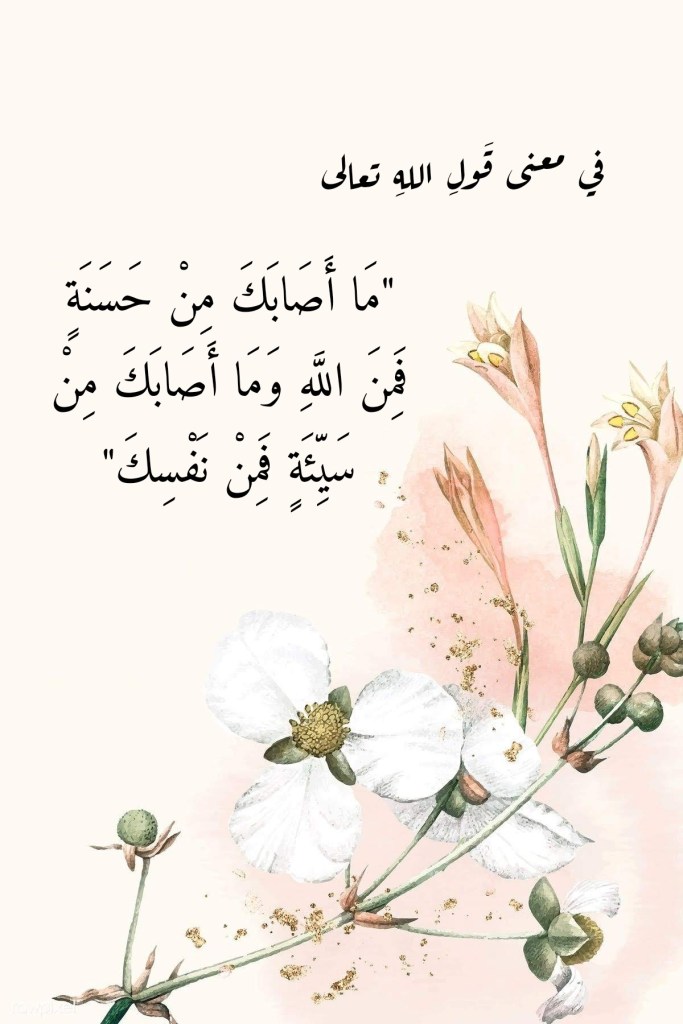 في معنى قَولِ اللهِ تعالى
"مَا أَصَابَكَ مِنْ حَسَنَةٍ
فَمِنَ اللَّهِ وَمَا أَصَابَكَ مِنْ
سَيِّئَةٍ فَمِنْ نَفْسِكَ"